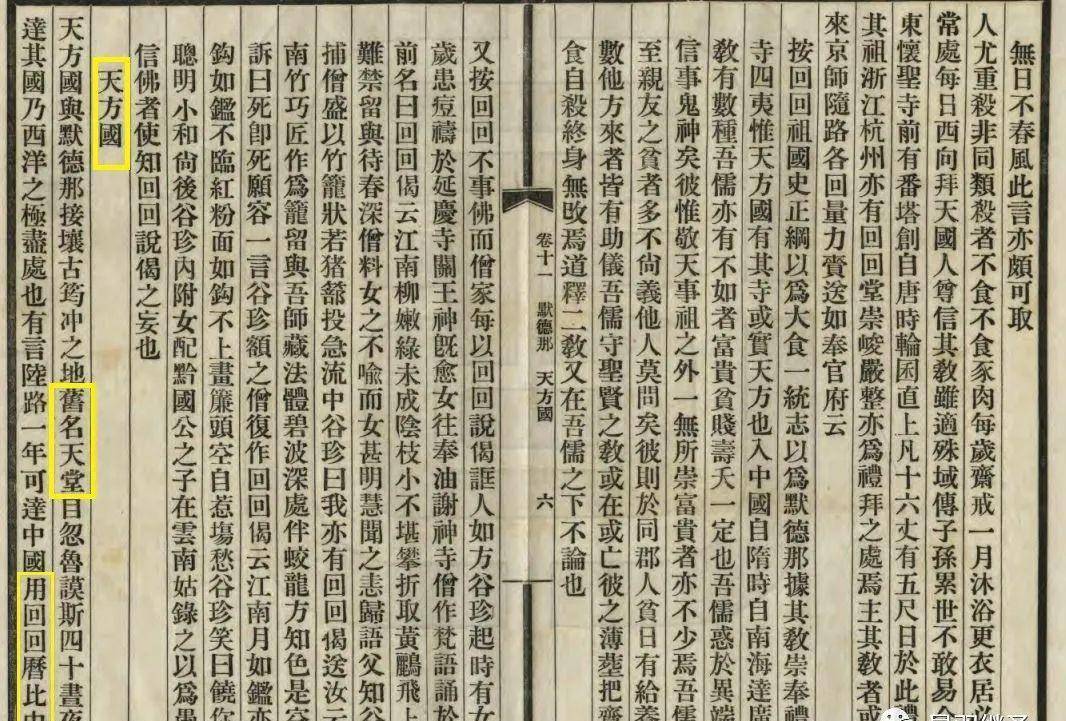 無日不春風此言亦頗可取
人尤重殺非同類殺者不食不食豕肉每歲齋戒一月沐浴更衣居必
常處每日西向拜天國人尊信其敎雖適殊域傳子孫累世不敢易今
東懷聖寺前有番塔創自唐時輪囷直上凡十六丈有五尺日於此禮
其祖浙江杭州亦有回回堂崇峻嚴整亦爲禮拜之處焉主其敎者或
來京師隨路各回量力賫送如奉官府云
按回回祖國史正綱以爲大食一統志以爲默德那據其敎崇奉禮
寺四夷惟天方國有其寺或實天方也入中國自隋時自南海達廣
敎有數種吾儒亦有不如者富貴貧賤壽夭一定也吾儒惑於異端
信事鬼神矣彼惟敬天事祖之外一無所崇富貴者亦不少焉吾儒
至親友之貧者多不尙義他人莫問矣彼則於同郡人貧日有給養
數他方來者皆有助儀吾儒守聖賢之敎或在或亡彼之薄葬把齋
食自殺終身無改焉道釋二敎又在吾儒之下不論也
卷十一 默德那 天方國 六
又按回回不事佛而僧家每以回回說偈誑人如方谷珍起時有女
歲患痘禱於延慶寺關王神旣愈女往奉油謝神寺僧作梵語誦於
前名曰回回偈云江南柳嫩綠未成陰枝小不堪攀折取黃鸝飛上
難禁留與待春深僧料女之不喩而女甚明慧聞之恚歸語父知谷
捕僧盛以竹籠狀若猪篰投急流中谷珍曰我亦有回回偈送汝云
南竹巧匠作爲籠留與吾師藏法體碧波深處伴蛟龍方知色是空
訴曰死卽死願容一言谷珍額之僧復作回回偈云江南月如鑑亦
鈎如鑑不臨紅粉面如鈎不上畫簾頭空自惹塲愁谷珍笑曰饒你
聰明小和尙後谷珍內附女配黔國公之子在雲南姑錄之以爲愚
信佛者使知回回說偈之妄也
天方國
天方國與默德那接壤古筠冲之地舊名天堂自忽魯謨斯四十晝夜
達其國乃西洋之極盡處也有言陸路一年可達中國用回回曆比中